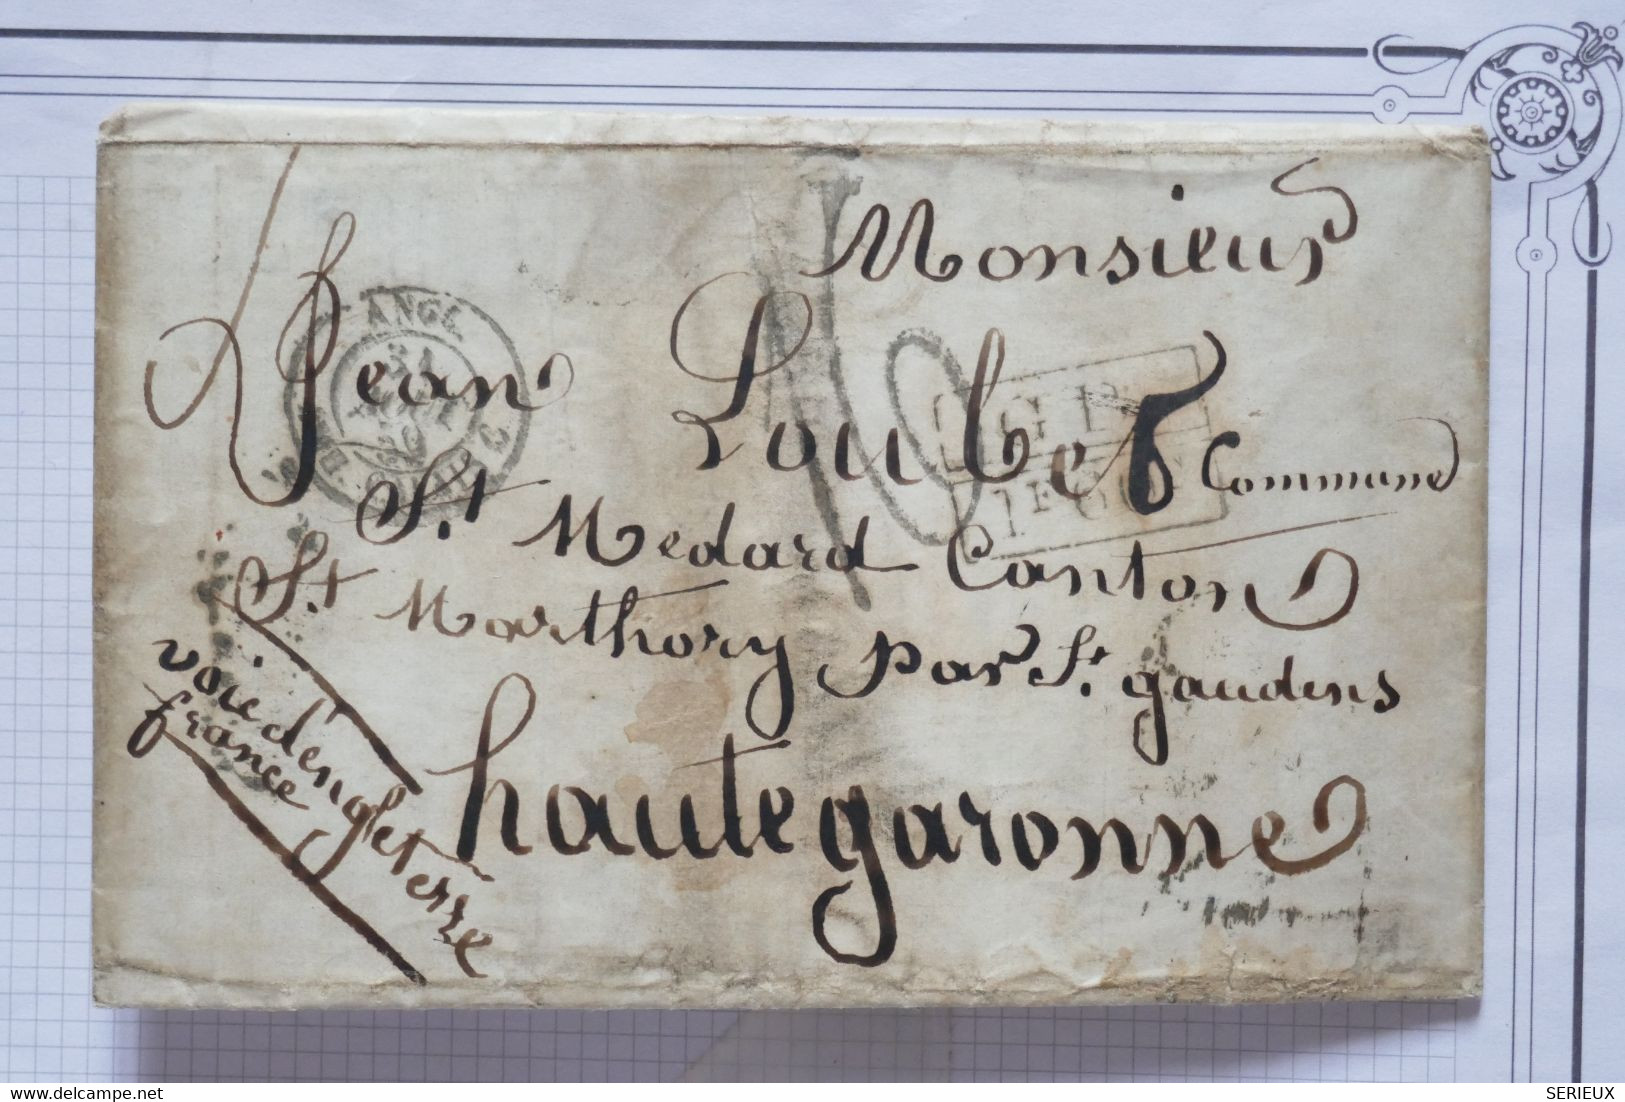 Monsieur
Jean Loubet Commune
St Medard Canton
St Marthory par St. gaudens
hautegaronne
voie d'engleterre
france
ANGL.
31
BOULOGNE
10
delcampe.net
SERIEUX